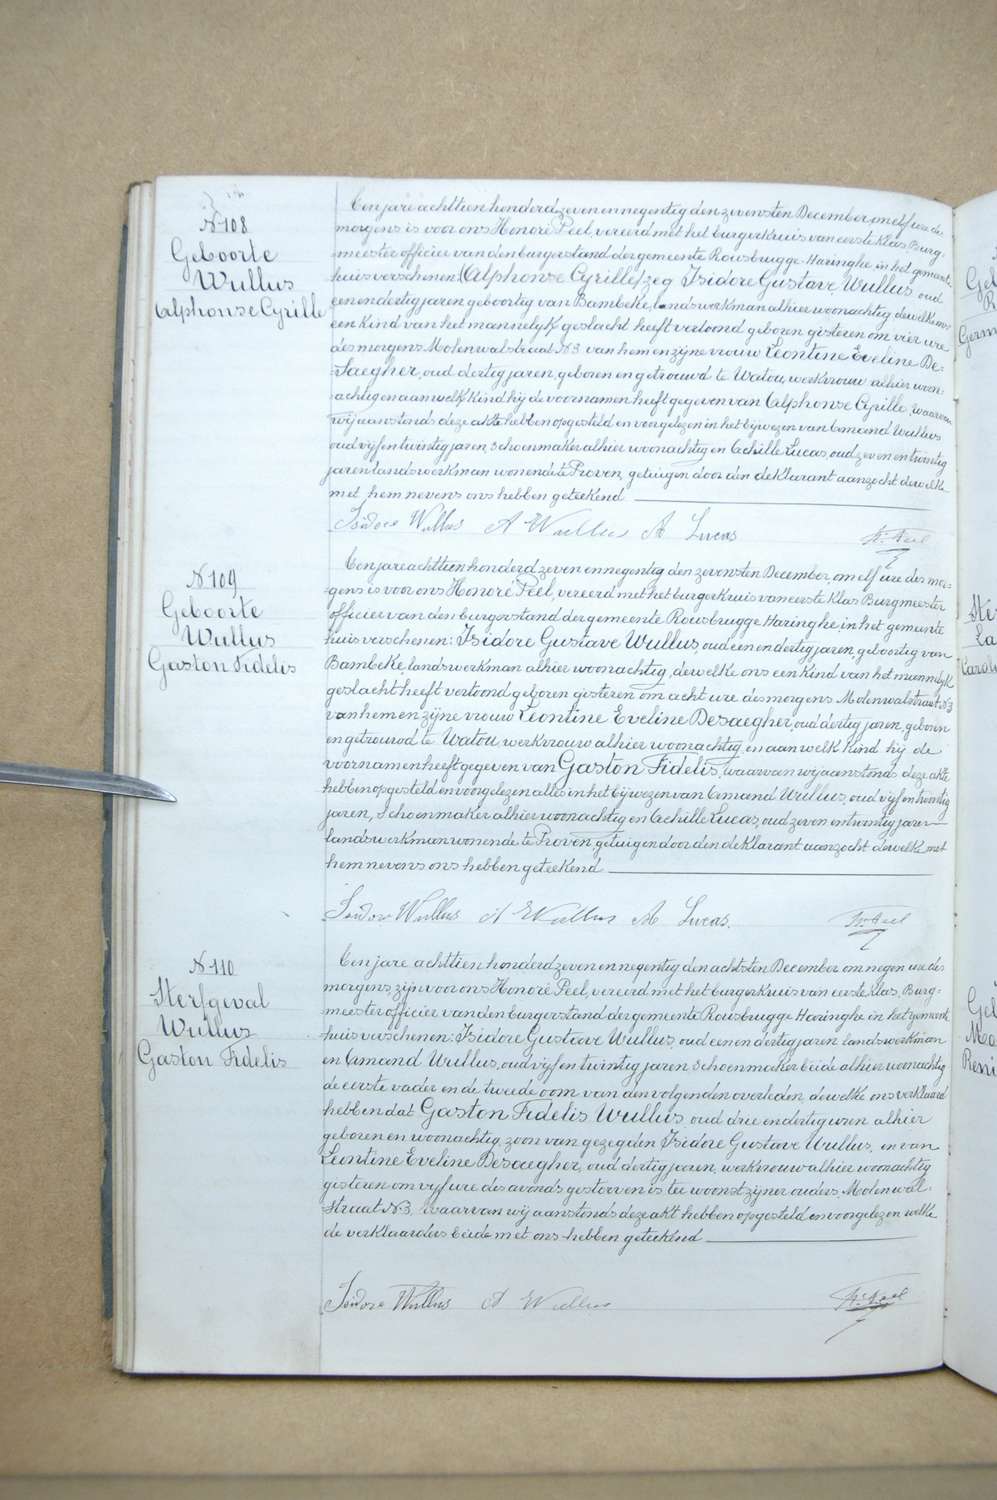 N 108
Geboorte
Wullus
Alphonse Cyrille
Ten jare achttien honderd zeven en negentig den zevensten December, om elf ure des
morgens is voor ons Honoré Peel, vereerd met het burgerkruis van eerste Klas Burg-
meester officier van den burgerstand der gemeente Rousbrugge-Haringhe in het gemeente-
huis verschenen Isidore Gustave Wullus, oud
een en dertig jaren geboortig van Bambeke, landswerkman alhier woonachtig dewelke ons
een kind van het mannelyk geslacht heeft vertoond geboren gisteren om vier ure
des morgens Molenwalstraat N3 van hem en zijne vrouw Leontine Eveline De-
saegher, oud dertig jaren, geboren en getrouwd te Watou, werkvrouw alhier woon-
achtig en aan welk kind hij de voornamen heeft gegeven van Alphonse Cyrille, waarvan
wij aanstonds deze akte hebben opgesteld en voorgelezen in het bijwezen van Armand Wullus
oud vijf en twintig jaren, schoenmaker alhier woonachtig en Achille Lucas, oud zeven en twintig
jaren landswerkman wonende te Proven, getuigen door den deklarant aanzocht dewelke
met hem nevens ons hebben geteekend
Isidore Wullus A Wullus A Lucas Hr. Peel
N 109
Geboorte
Wullus
Gaston Fidelis
Ten jare achttien honderd zeven en negentig den zevensten December, om elf ure des mor-
gens is voor ons Honoré Peel, vereerd met het burgerkruis van eerste Klas Burgmeester
officier van den burgerstand der gemeente Rousbrugge Haringhe, in het gemeente
huis verschenen: Isidore Gustave Wullus, oud een en dertig jaren, geboortig van
Bambeke, landswerkman alhier woonachtig, dewelke ons een kind van het mannelyk
geslacht heeft vertoond geboren gisteren om acht ure des morgens Molenwalstraat N3
van hem en zijne vrouw Leontine Eveline Desaegher, oud dertig jaren, geboren
en getrouwd te Watou, werkvrouw alhier woonachtig, en aan welk kind hij de
voornamen heeft gegeven van Gaston Fidelis, waarvan wij aanstonds deze akte
hebben opgesteld en voorgelezen alles in het bijwezen van Armand Wullus, oud vijf en twintig
jaren, Schoenmaker alhier woonachtig en Achille Lucas, oud zeven en twintig jaren
landswerkman wonende te Proven, getuigen door den deklarant aanzocht dewelke met
hem nevens ons hebben geteekend
Isidore Wullus A Wullus A Lucas. Hr. Peel
N 110
Sterfgeval
Wullus
Gaston Fidelis
Ten jare achttien honderd zeven en negentig den achtsten December om negen ure des
morgens, zijn voor ons Honoré Peel, vereerd met het burgerkruis van eerste klas, Burg-
meester officier van den burgerstand der gemeente Rousbrugge Haringhe in het gemeente
huis verschenen: Isidore Gustave Wullus, oud een en dertig jaren landswerkman
en Armand Wullus, oud vijf en twintig jaren schoenmaker beide alhier woonachtig
de eerste vader en de tweede oom van den volgenden overleden, dewelke ons verklaard
hebben dat Gaston Fidelis Wullus oud drie en dertig uren alhier
geboren en woonachtig, zoon van gezegden Isidore Gustave Wullus, en van
Leontine Eveline Desaegher, oud dertig jaren, werkvrouw alhier woonachtig
gisteren om vyf ure des avonds gestorven is ter woonst zijner ouders, Molenwal-
straat N3, waarvan wij aanstonds deze akt hebben opgesteld en voorgelezen welke
de verklaarders beide met ons hebben geteekend
Isidore Wullus A Wullus Hr. Peel